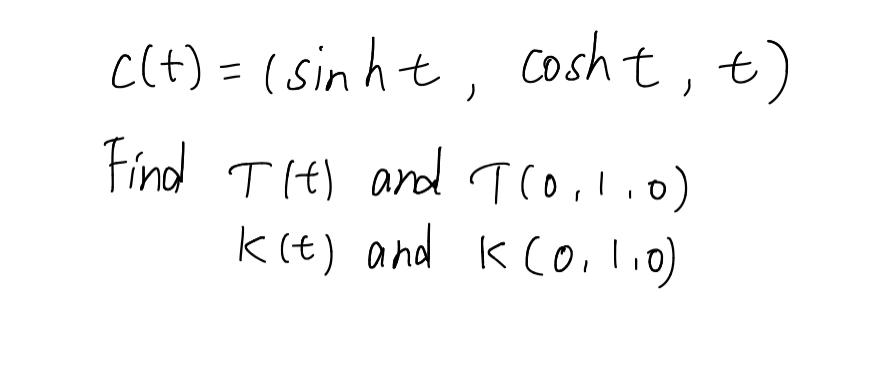 c(t) = (sinh t, cosh t, t)
Find T(t) and T(0,1,0)
K(t) and K(0,1,0)